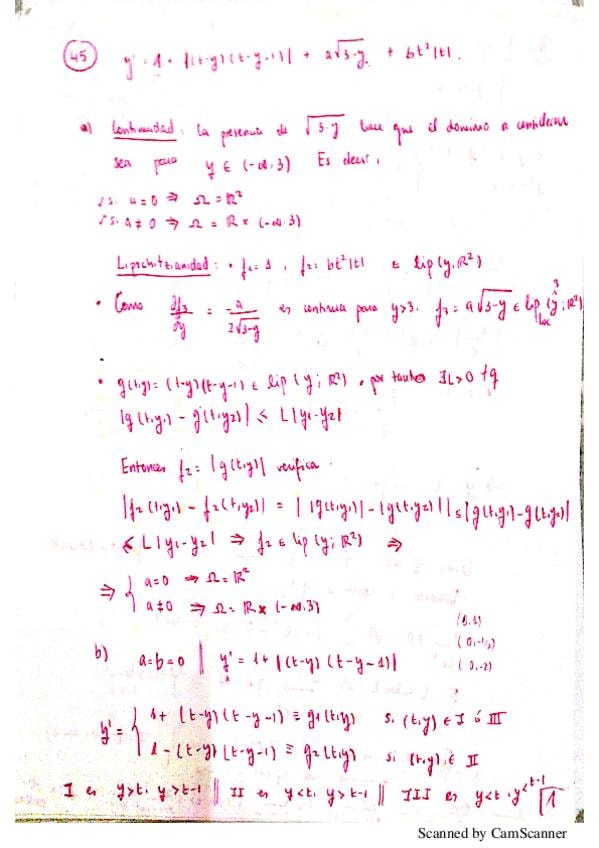 45 y' = 1 + |(t-y)(t-y-1)| + a√3-y + bt²|t|.
a) Continuidad: la presencia de √3-y hace que el dominio a considerar
sea para y ∈ (-∞,3) Es decir,
si a=0 ⇒ Ω=ℝ²
si a≠0 ⇒ Ω=ℝ×(-∞,3)
Lipschitzianidad: • f₁=1, f₂=bt²|t| ∈ Lip(y,ℝ²)
• Como ∂f₃/∂y = a/2√3-y es continua para y>3. f₃=a√3-y ∈ Lip loc (y;ℝ²)
• g(t,y)=(t-y)(t-y-1) ∈ Lip(y;ℝ²), por tanto ∃L>0 tq
|g(t,y₁) - g(t,y₂)| ≤ L|y₁-y₂|
Entonces f₂=|g(t,y)| verifica
|f₂(t,y₁) - f₂(t,y₂)| = ||g(t,y₁)| - |g(t,y₂)|| ≤ |g(t,y₁)-g(t,y₂)|
≤ L|y₁-y₂| ⇒ f₂ ∈ Lip(y;ℝ²) ⇒
⇒ { a=0 ⇒ Ω=ℝ²
a≠0 ⇒ Ω=ℝ×(-∞,3)
(0,-1/2)
(0,-2)
b) a=b=0 || y' = 1+|(t-y)(t-y-1)|
y' = { 1+(t-y)(t-y-1) ≡ g₁(t,y) si (t,y) ∈ I ó III
1-(t-y)(t-y-1) ≡ g₂(t,y) si (t,y) ∈ II
I es y>t, y>t-1 || II es y<t, y>t-1 || III es y<t, y<t-1
1
Scanned by CamScanner